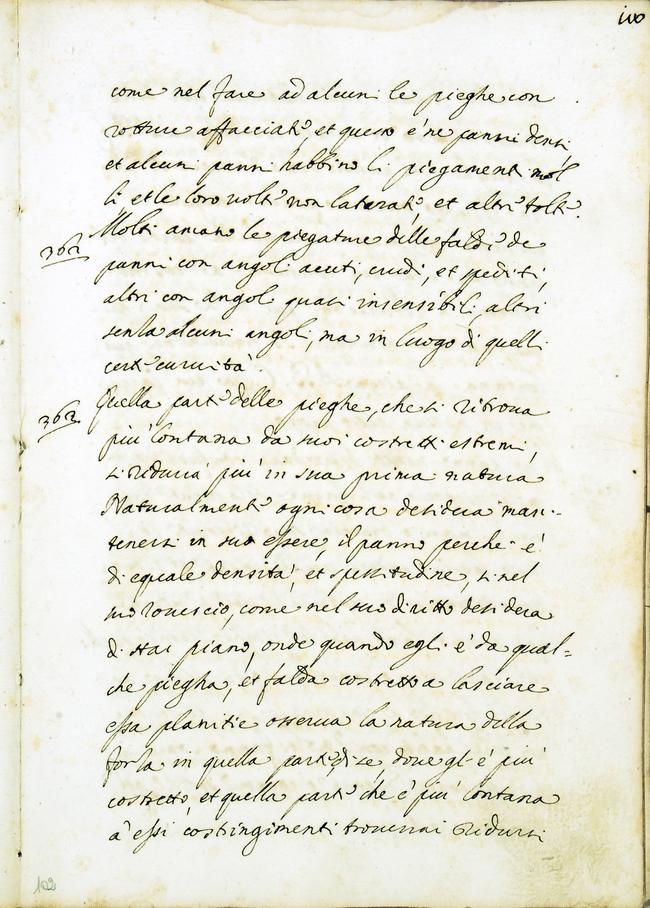 100
come nel fare ad alcuni le pieghe con
rotture affacciate, et questo é ne panni densi
et alcuni panni habbino li piegamenti mol
li, et le loro uolte non laterate, et altri
362
Molti amano le piegature delle falde de
panni con angoli acuti, crudi, et spediti,
altri con angoli quasi insensibili, altri
senza alcuni angoli, ma in luogo di quelli
certe curuità.
362
Quella parte delle pieghe, che si ritroua
piu' lontana da suoi costretti estremi,
si ridurrà piu' in sua prima natura
Naturalmente ogni cosa desidera man-
tenersi in suo essere, il panno perche é
di equale densità, et spessitudine, si nel
suo rouescio, come nel suo diritto desidera
di star piano, onde quando egli é da qual=
che piegha, et falda costretto a lasciare
essa planitie osserua la natura della
forza in quella parte di se, doue gli é piu'
costretto, et quella parte che é piu' lontana
à essi costringimenti trouerrai ridursi
102